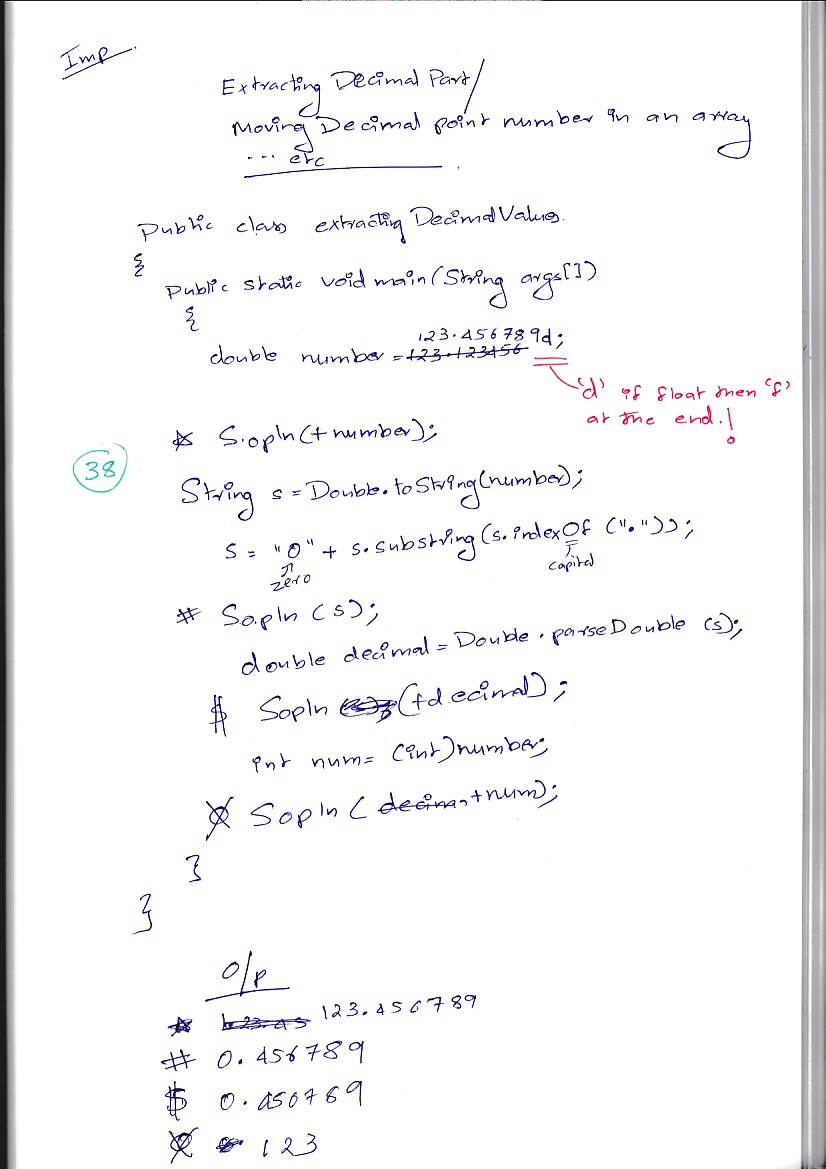 Imp
Extracting Decimal Part/
Moving Decimal point number in an array
... etc
Public class extracting Decimal Values.
{
Public static void main(String args[])
{
123.456789d;
double number = 123.123456
'd' if float then 'f'
at the end.!
* S.opln(+number);
38
String s = Double.toString(number);
s = "0" + s.substring(s.indexOf ("."));
zero
capital
# So.pln (s);
double decimal = Double.parseDouble (s);
$ Sopln (+decimal);
int num= (int)number;
Sopln ( decima, +num);
}
}
O/p
123.456789
# 0.456789
$ 0.456789
123